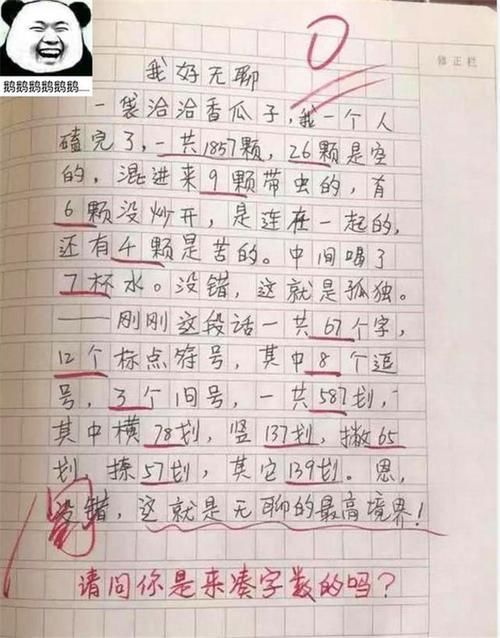 鹅鹅鹅鹅鹅鹅
0
修正栏
我好无聊
一袋洽洽香瓜子,我一个人
磕完了,一共1857颗,26颗是空
的,混进来9颗带虫的,有
6颗没炒开,是连在一起的,
还有4颗是苦的。中间喝了
7杯水。没错,这就是孤独。
——刚刚这段话一共67个字,
12个标点符号,其中8个逗
号,3个问号,一共587划,
其中横78划,竖137划,撇65
划,捺57划,其它139划。恩,
没错,这就是无聊的最高境界!
请问你是来凑字数的吗?